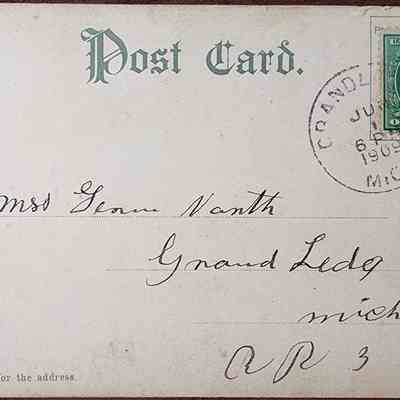 Post Card.
GRAND L
JU
1
6 P
1909
MIC
Miss Vanth
Grand Ledg
mich
R R 3
for the address.